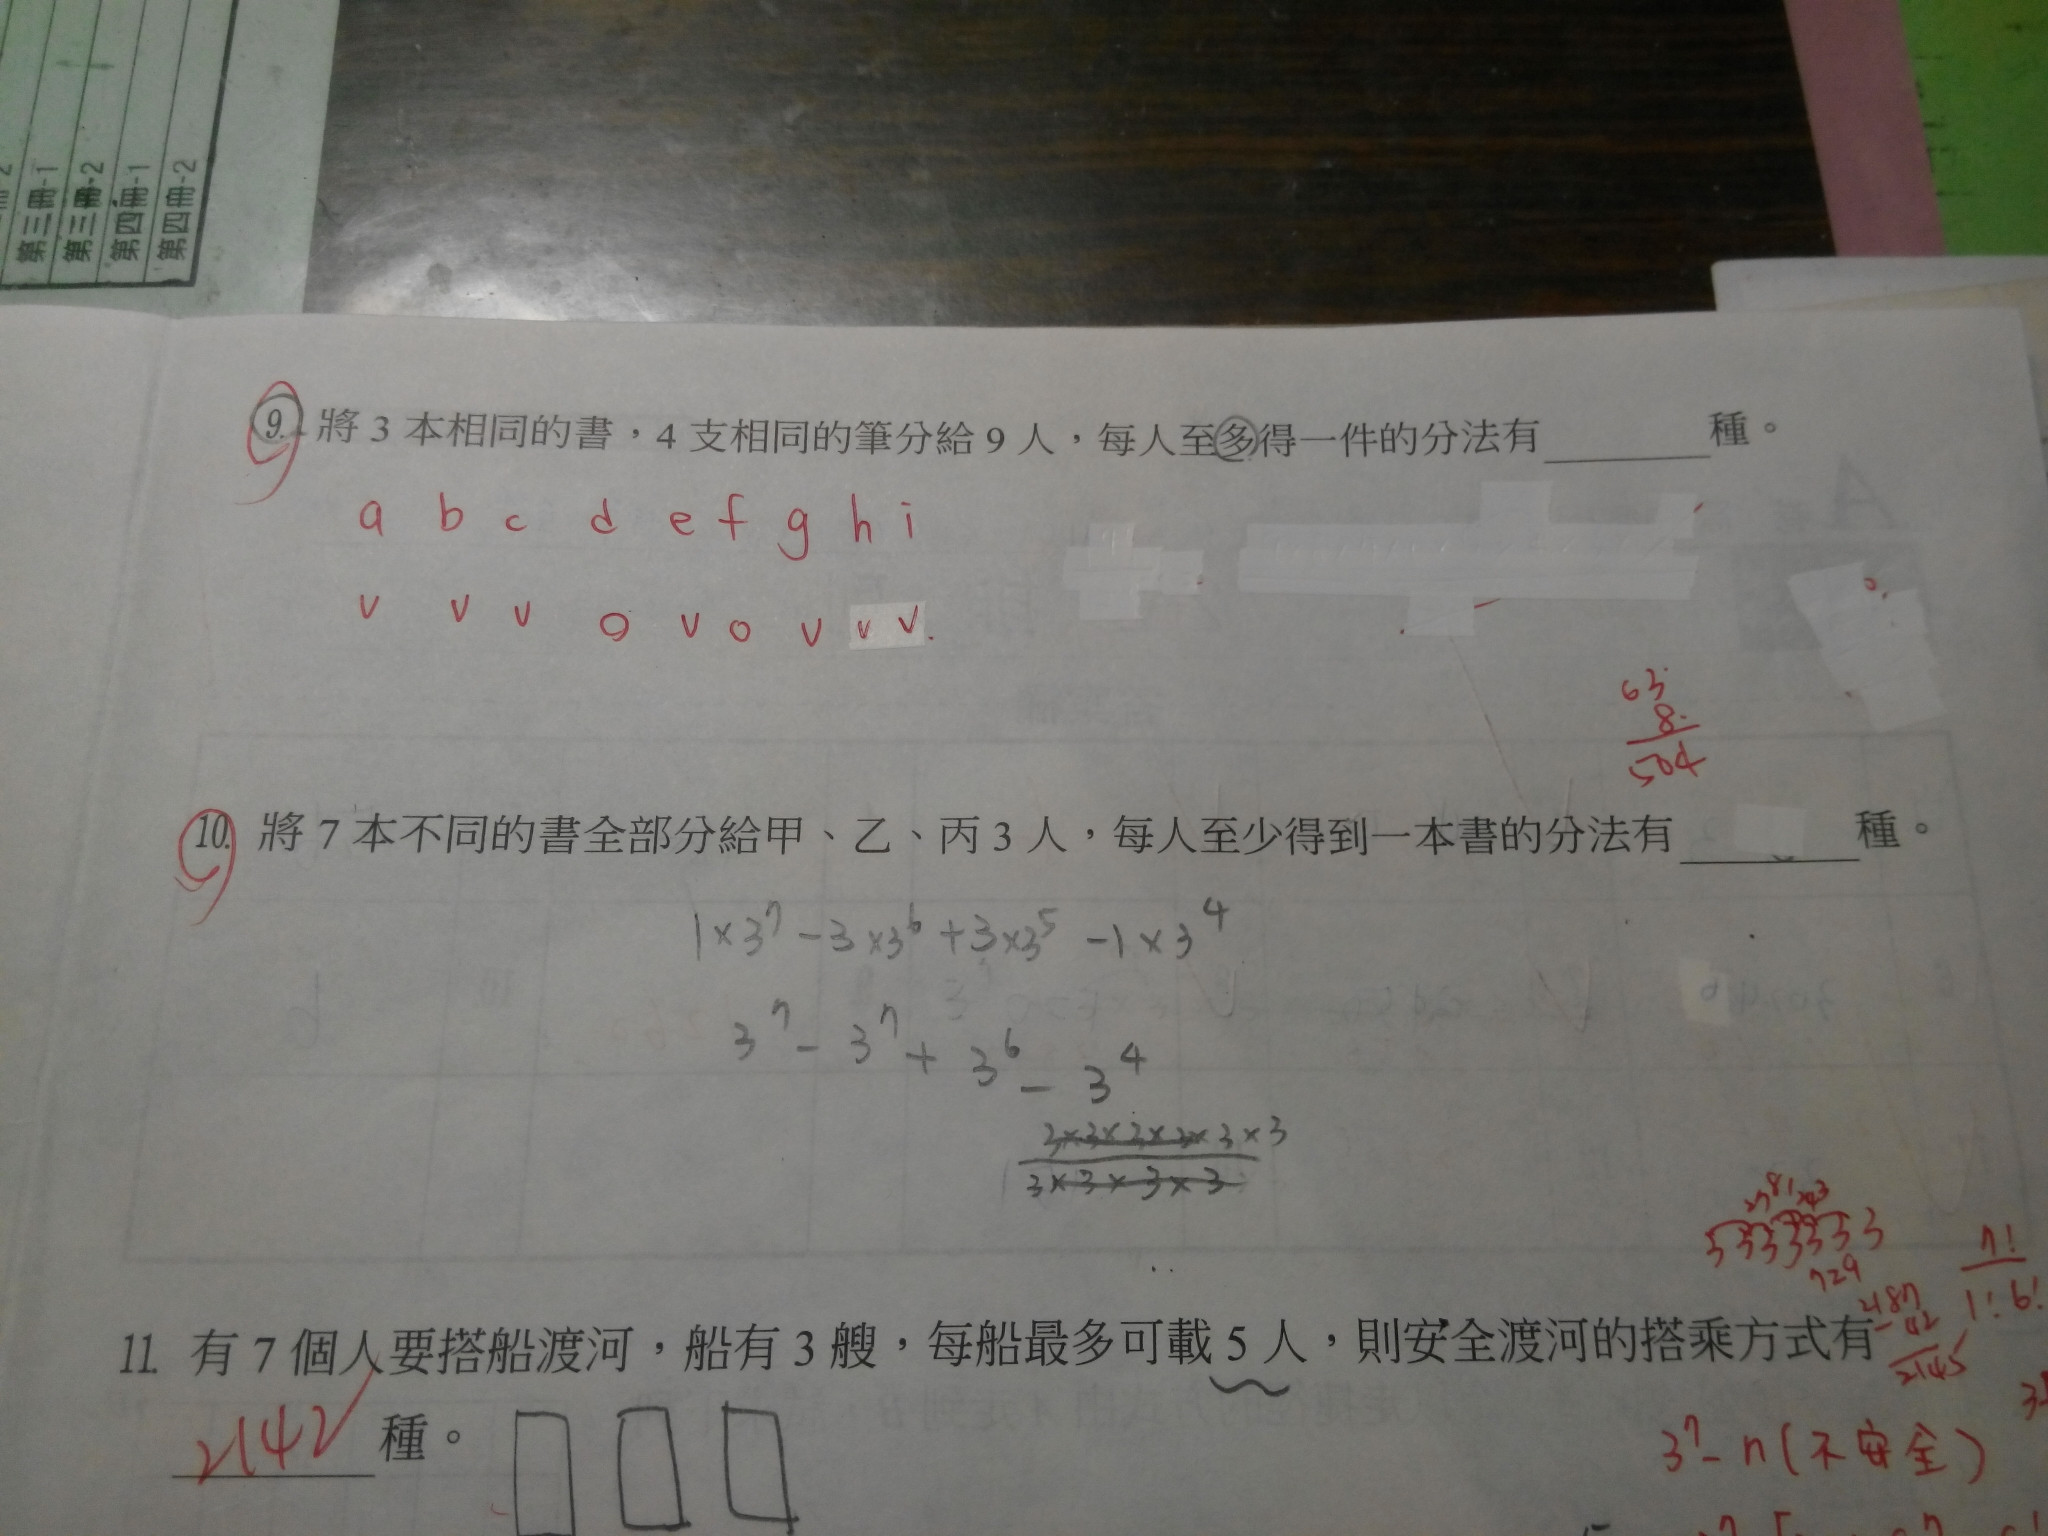 第三冊-1
第三冊-2
第四冊-1
第四冊-2
9. 將 3 本相同的書，4 支相同的筆分給 9 人，每人至多得一件的分法有______種。
a b c d e f g h i
v v v o v o v v v.
63
8
504
10. 將 7 本不同的書全部分給甲、乙、丙 3 人，每人至少得到一本書的分法有______種。
1×3⁷-3×3⁶+3×3⁵-1×3⁴
3⁷-3⁷+3⁶-3⁴
3×3×3×3×3×3
3×3×3×3
81
3 3 3 3 3 3 3
729
7!
1!6!
2187
42
2145
11. 有 7 個人要搭船渡河，船有 3 艘，每船最多可載 5 人，則安全渡河的搭乘方式有
2142 種。
3⁷-n(不安全)